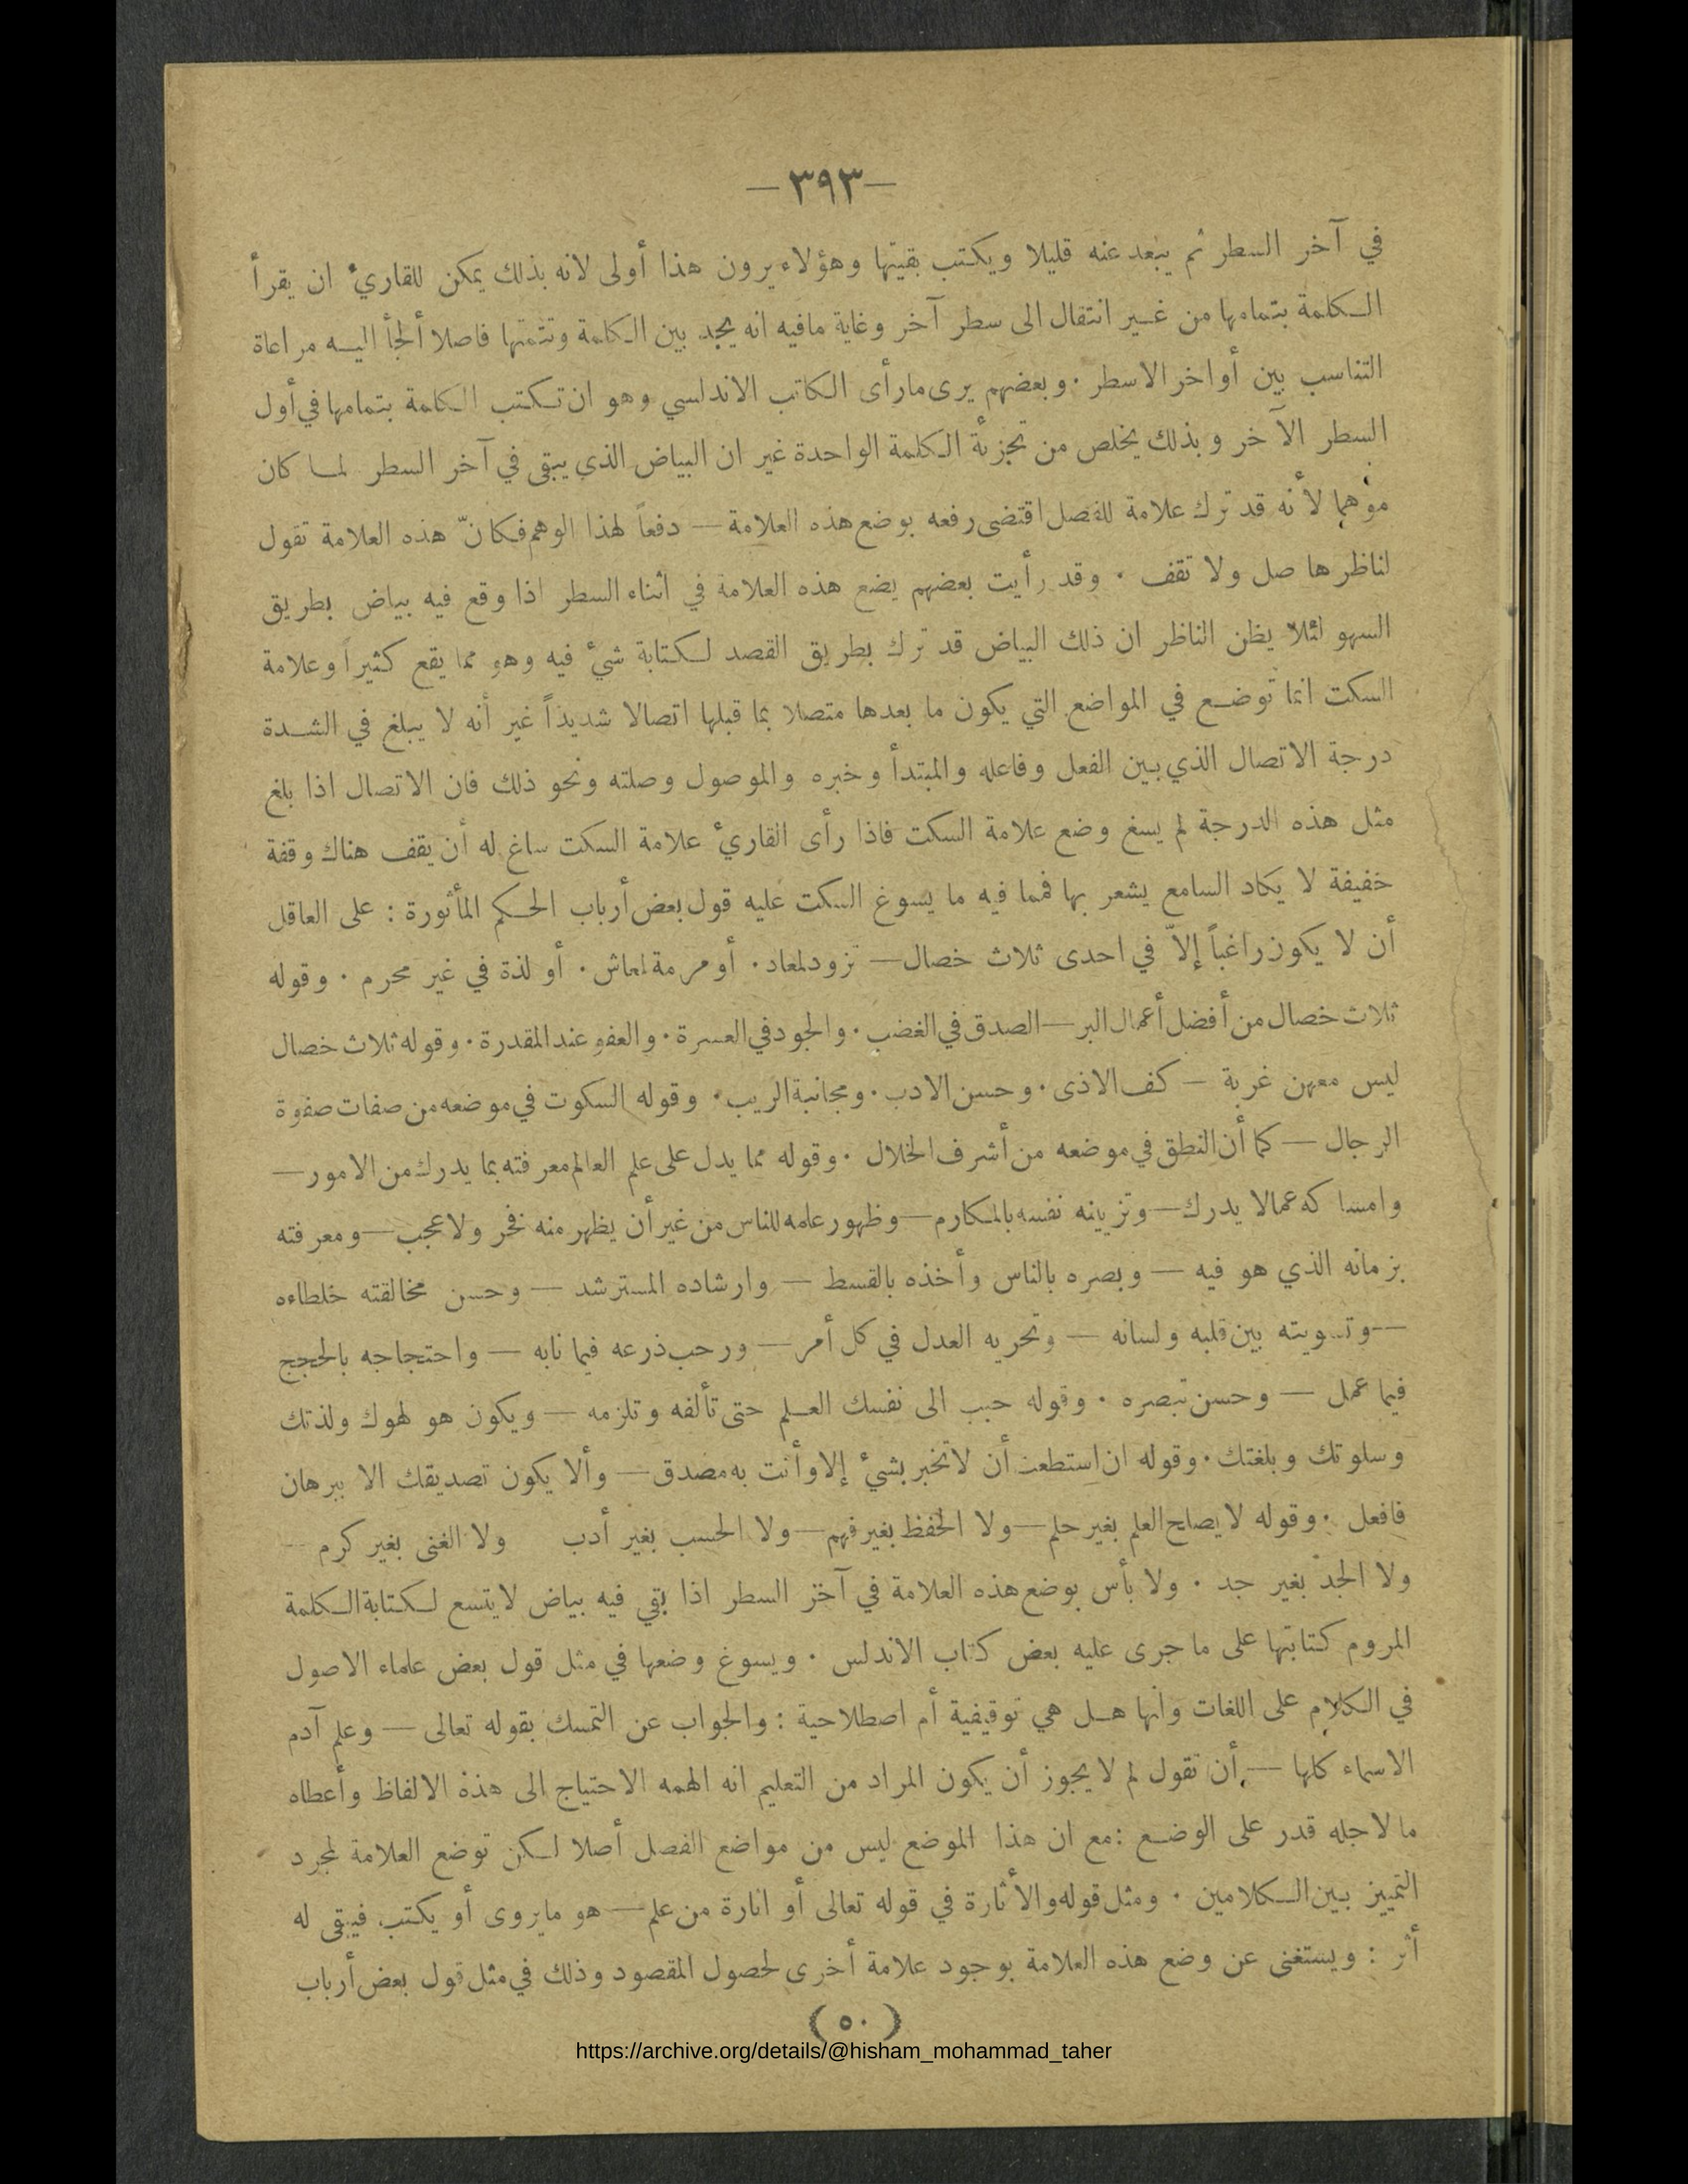 —٣٩٣—
في آخر السطر ثم يبعد عنه قليلا ويكتب بقيتها وهؤلاء يرون هذا أولى لانه بذلك يمكن للقاريء ان يقرأ
الكلمة بتمامها من غير انتقال الى سطر آخر وغاية مافيه انه يجد بين الكلمة وتتمتها فاصلا ألجأ اليه مراعاة
التناسب بين أواخر الاسطر . وبعضهم يرى مارأى الكاتب الاندلسي وهو ان تكتب الكلمة بتمامها في أول
السطر الآخر وبذلك يخلص من تجزئة الكلمة الواحدة غير ان البياض الذي يبقى في آخر السطر لما كان
موهما لأنه قد ترك علامة للفصل اقتضى رفعه بوضع هذه العلامة — دفعاً لهذا الوهم فكانّ هذه العلامة تقول
لناظرها صل ولا تقف . وقد رأيت بعضهم يضع هذه العلامة في اثناء السطر اذا وقع فيه بياض بطريق
السهو لئلا يظن الناظر ان ذلك البياض قد ترك بطريق القصد لكتابة شيء فيه وهو مما يقع كثيراً وعلامة
السكت انما توضع في المواضع التي يكون ما بعدها متصلا بما قبلها اتصالا شديداً غير أنه لا يبلغ في الشدة
درجة الاتصال الذي بين الفعل وفاعله والمبتدأ وخبره والموصول وصلته ونحو ذلك فان الاتصال اذا بلغ
مثل هذه الدرجة لم يسغ وضع علامة السكت فاذا رأى القاريء علامة السكت ساغ له أن يقف هناك وقفة
خفيفة لا يكاد السامع يشعر بها فمما فيه ما يسوغ السكت عليه قول بعض أرباب الحكم المأثورة : على العاقل
أن لا يكون راغباً إلاّ في احدى ثلاث خصال — تزود لمعاد . أو مرمة لمعاش . أو لذة في غير محرم . وقوله
ثلاث خصال من أفضل أعمال البر — الصدق في الغضب . والجود في العسرة . والعفو عند المقدرة . وقوله ثلاث خصال
ليس معهن غربة — كف الاذى . وحسن الادب . ومجانبة الريب . وقوله السكوت في موضعه من صفات صفوة
الرجال — كما أن النطق في موضعه من أشرف الخلال . وقوله مما يدل على علم العالم معرفته بما يدرك من الامور —
وامساكه عمالا يدرك — وتزيينه نفسه بالمكارم — وظهور علمه للناس من غير أن يظهر منه فخر ولا عجب — ومعرفته
بزمانه الذي هو فيه — وبصره بالناس وأخذه بالقسط — وارشاده المسترشد — وحسن مخالقته خلطاءه
— وتسويته بين قلبه ولسانه — وتحريه العدل في كل أمر — ورحب ذرعه فيما نابه — واحتجاجه بالحجج
فيما عمل — وحسن تبصره . وقوله حبب الى نفسك العلم حتى تألفه وتلزمه — ويكون هو لهوك ولذتك
وسلوتك وبلغتك . وقوله ان استطعت أن لاتخبر بشيء إلا وأنت به مصدق — وألا يكون تصديقك الا ببرهان
فافعل . وقوله لايصلح العلم بغير حلم — ولا الحفظ بغير فهم — ولا الحسب بغير أدب ولا الغنى بغير كرم —
ولا الجد بغير جد . ولا بأس بوضع هذه العلامة في آخر السطر اذا بقي فيه بياض لايتسع لكتابة الكلمة
المروم كتابتها على ما جرى عليه بعض كتاب الاندلس . ويسوغ وضعها في مثل قول بعض علماء الاصول
في الكلام على اللغات وأنها هل هي توقيفية أم اصطلاحية : والجواب عن التمسك بقوله تعالى — وعلم آدم
الاسماء كلها — أن تقول لم لا يجوز أن يكون المراد من التعليم انه الهمه الاحتياج الى هذه الالفاظ وأعطاه
ما لاجله قدر على الوضع : مع ان هذا الموضع ليس من مواضع الفصل أصلا لكن توضع العلامة لمجرد
التمييز بين الكلامين . ومثل قوله والأثارة في قوله تعالى أو اثارة من علم — هو مايروى أو يكتب فيبقى له
أثر : ويستغنى عن وضع هذه العلامة بوجود علامة أخرى لحصول المقصود وذلك في مثل قول بعض أرباب
(٥٠)
https://archive.org/details/@hisham_mohammad_taher